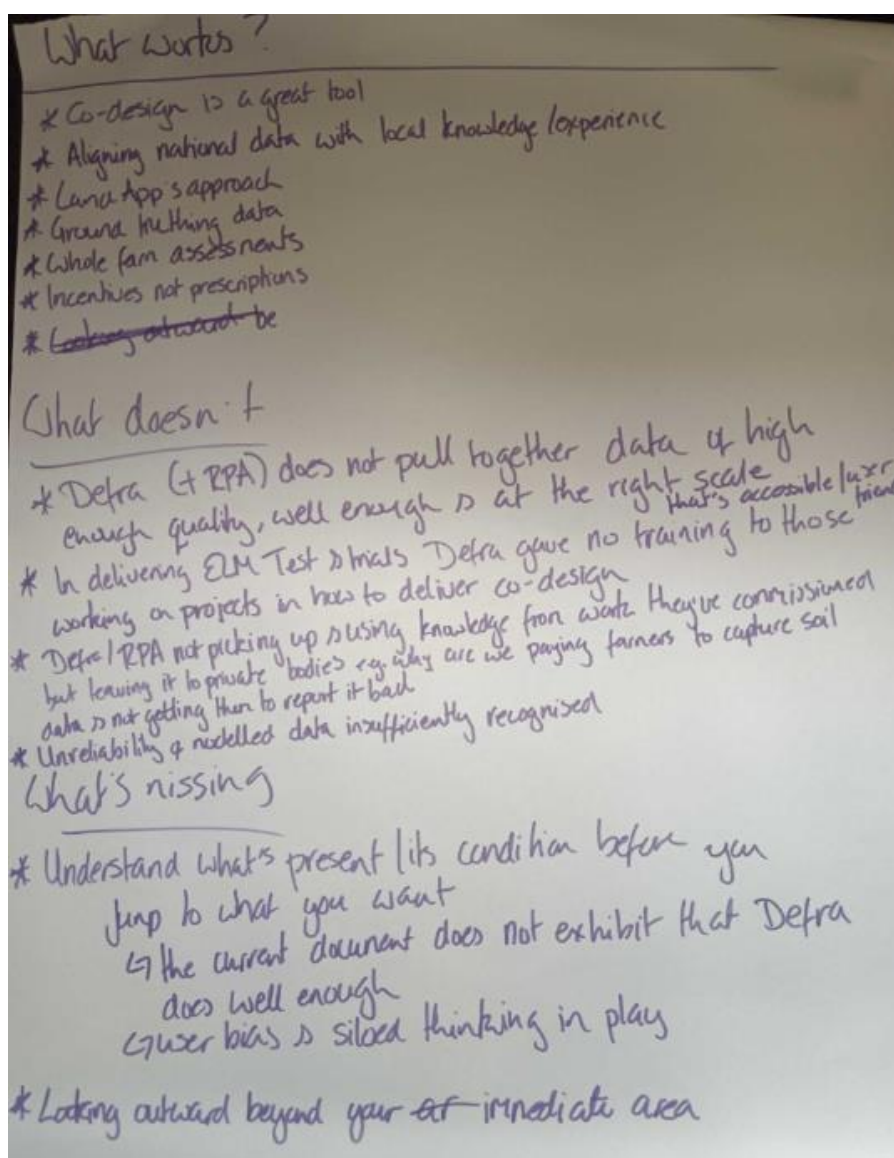 What works?
* Co-design is a great tool
* Aligning national data with local knowledge/experience
* Land App's approach
* Ground truthing data
* Whole farm assessments
* Incentives not prescriptions
* Looking outward be
What doesn't
* Defra (+ RPA) does not pull together data of high
enough quality, well enough & at the right scale
that's accessible/user
friend
* In delivering ELM Test & trials Defra gave no training to those
working on projects in how to deliver co-design
* Defra/RPA not picking up & using knowledge from work they've commissioned
but leaving it to private bodies eg. why are we paying farmers to capture soil
data & not getting them to report it back
* Unreliability of modelled data insufficiently recognised
What's missing
* Understand what's present/its condition before you
jump to what you want
↳ the current document does not exhibit that Defra
does well enough
↳ user bias & siloed thinking in play
* Looking outward beyond your immediate area